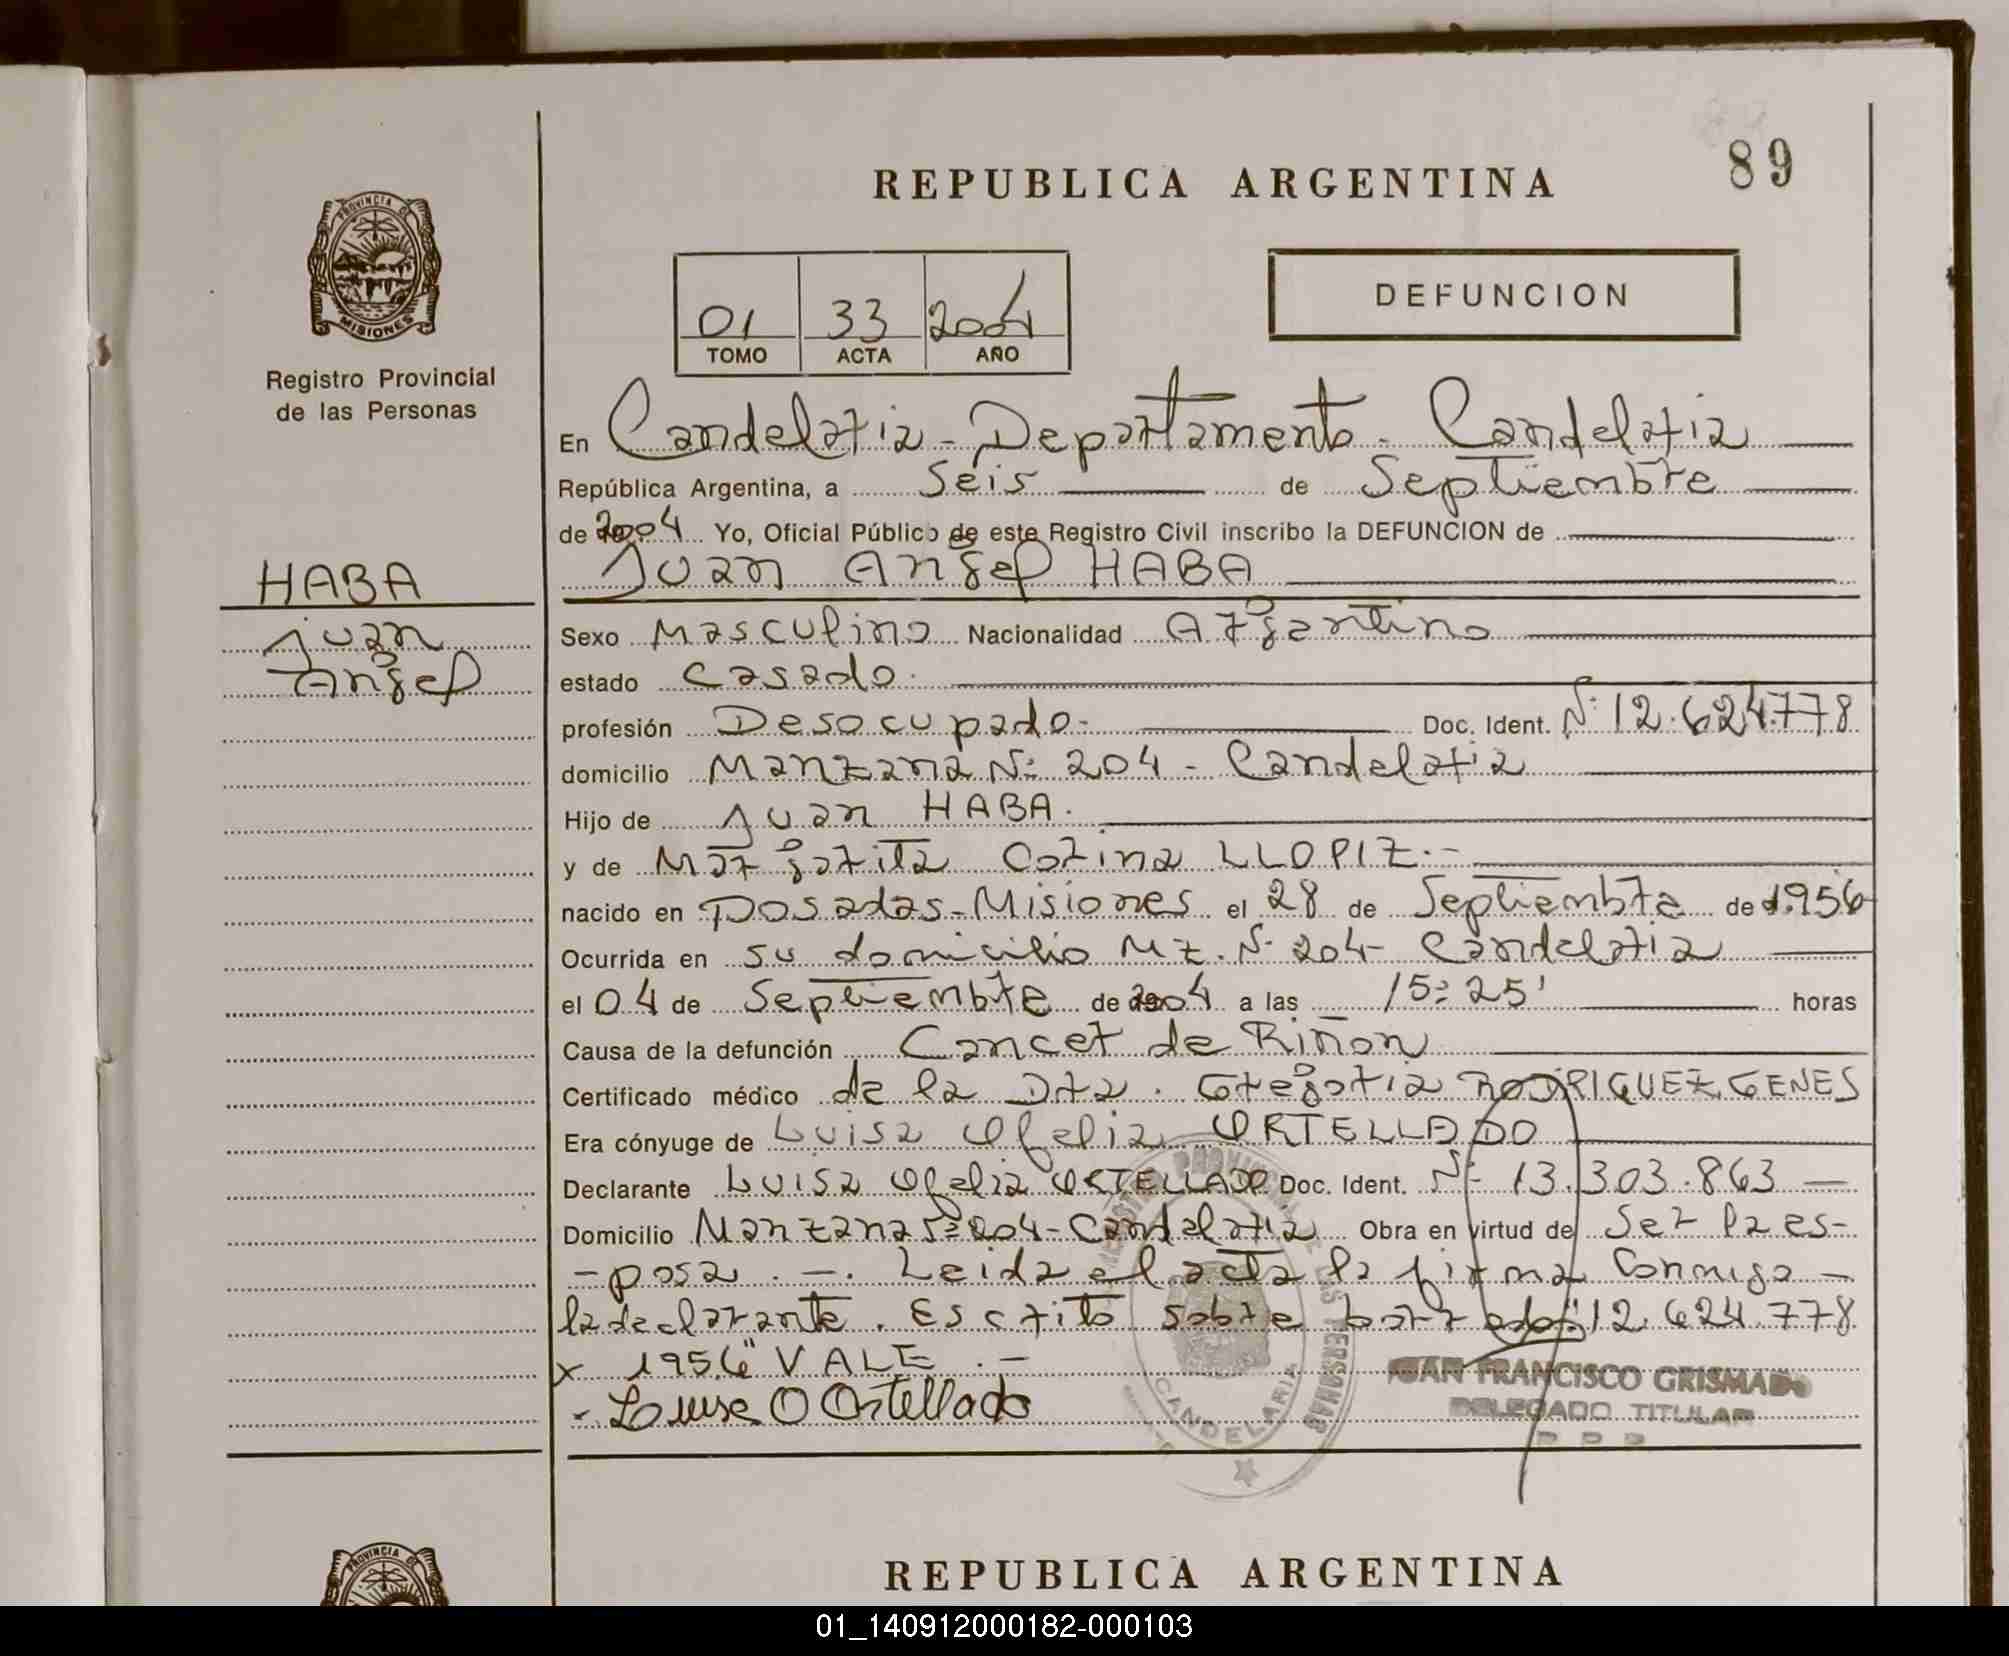 89
REPUBLICA ARGENTINA
PROVINCIA DE
MISIONES
Registro Provincial
de las Personas
DEFUNCION
01 33 2004
TOMO ACTA AÑO
En Candelaria - Departamento - Candelaria
República Argentina, a Seis de Septiembre
de 2004 Yo, Oficial Público de este Registro Civil inscribo la DEFUNCION de
Juan Angel HABA
HABA
Juan
Angel
Sexo Masculino Nacionalidad Argentino
estado Casado.
profesión Desocupado- Doc. Ident. Nº 12.624.778
domicilio Manzana Nº 204 - Candelaria
Hijo de Juan HABA.
y de Margarita Corina LLOPIZ.-
nacido en Posadas-Misiones el 28 de Septiembre de 1.956
Ocurrida en su domicilio Mz. Nº 204- Candelaria
el 04 de Septiembre de 2004 a las 15:25' horas
Causa de la defunción Cancer de Riñon
Certificado médico de la Dra. Gregoria RODRIGUEZ GENES
Era cónyuge de Luisa Ofelia ORTELLADO
Declarante Luisa Ofelia ORTELLADO Doc. Ident. Nº 13.303.863 —
Domicilio Manzana Nº 204-Candelaria Obra en virtud de Ser la es-
-posa.-. Leida el acta la firma Conmigo -
la declarante. Escrito sobre borrados: "12.624.778
x 1956" VALE.-
- Luisa O Ortellado
CANDELARIA
JUAN FRANCISCO GRISMADO
DELEGADO TITULAR
REPUBLICA ARGENTINA
PROVINCIA DE
01_140912000182-000103